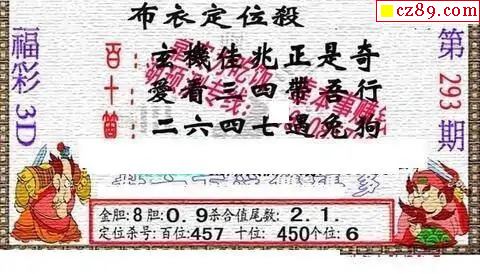 cz89.com
布衣定位殺
福彩3D
第293期
百 玄機佳兆正是奇
十 愛看三四帶吾行
個 二六四七遇兔狗
金胆:8胆:0.9杀合值尾数:2.1.
定位杀号:百位:457 十位:450个位:6